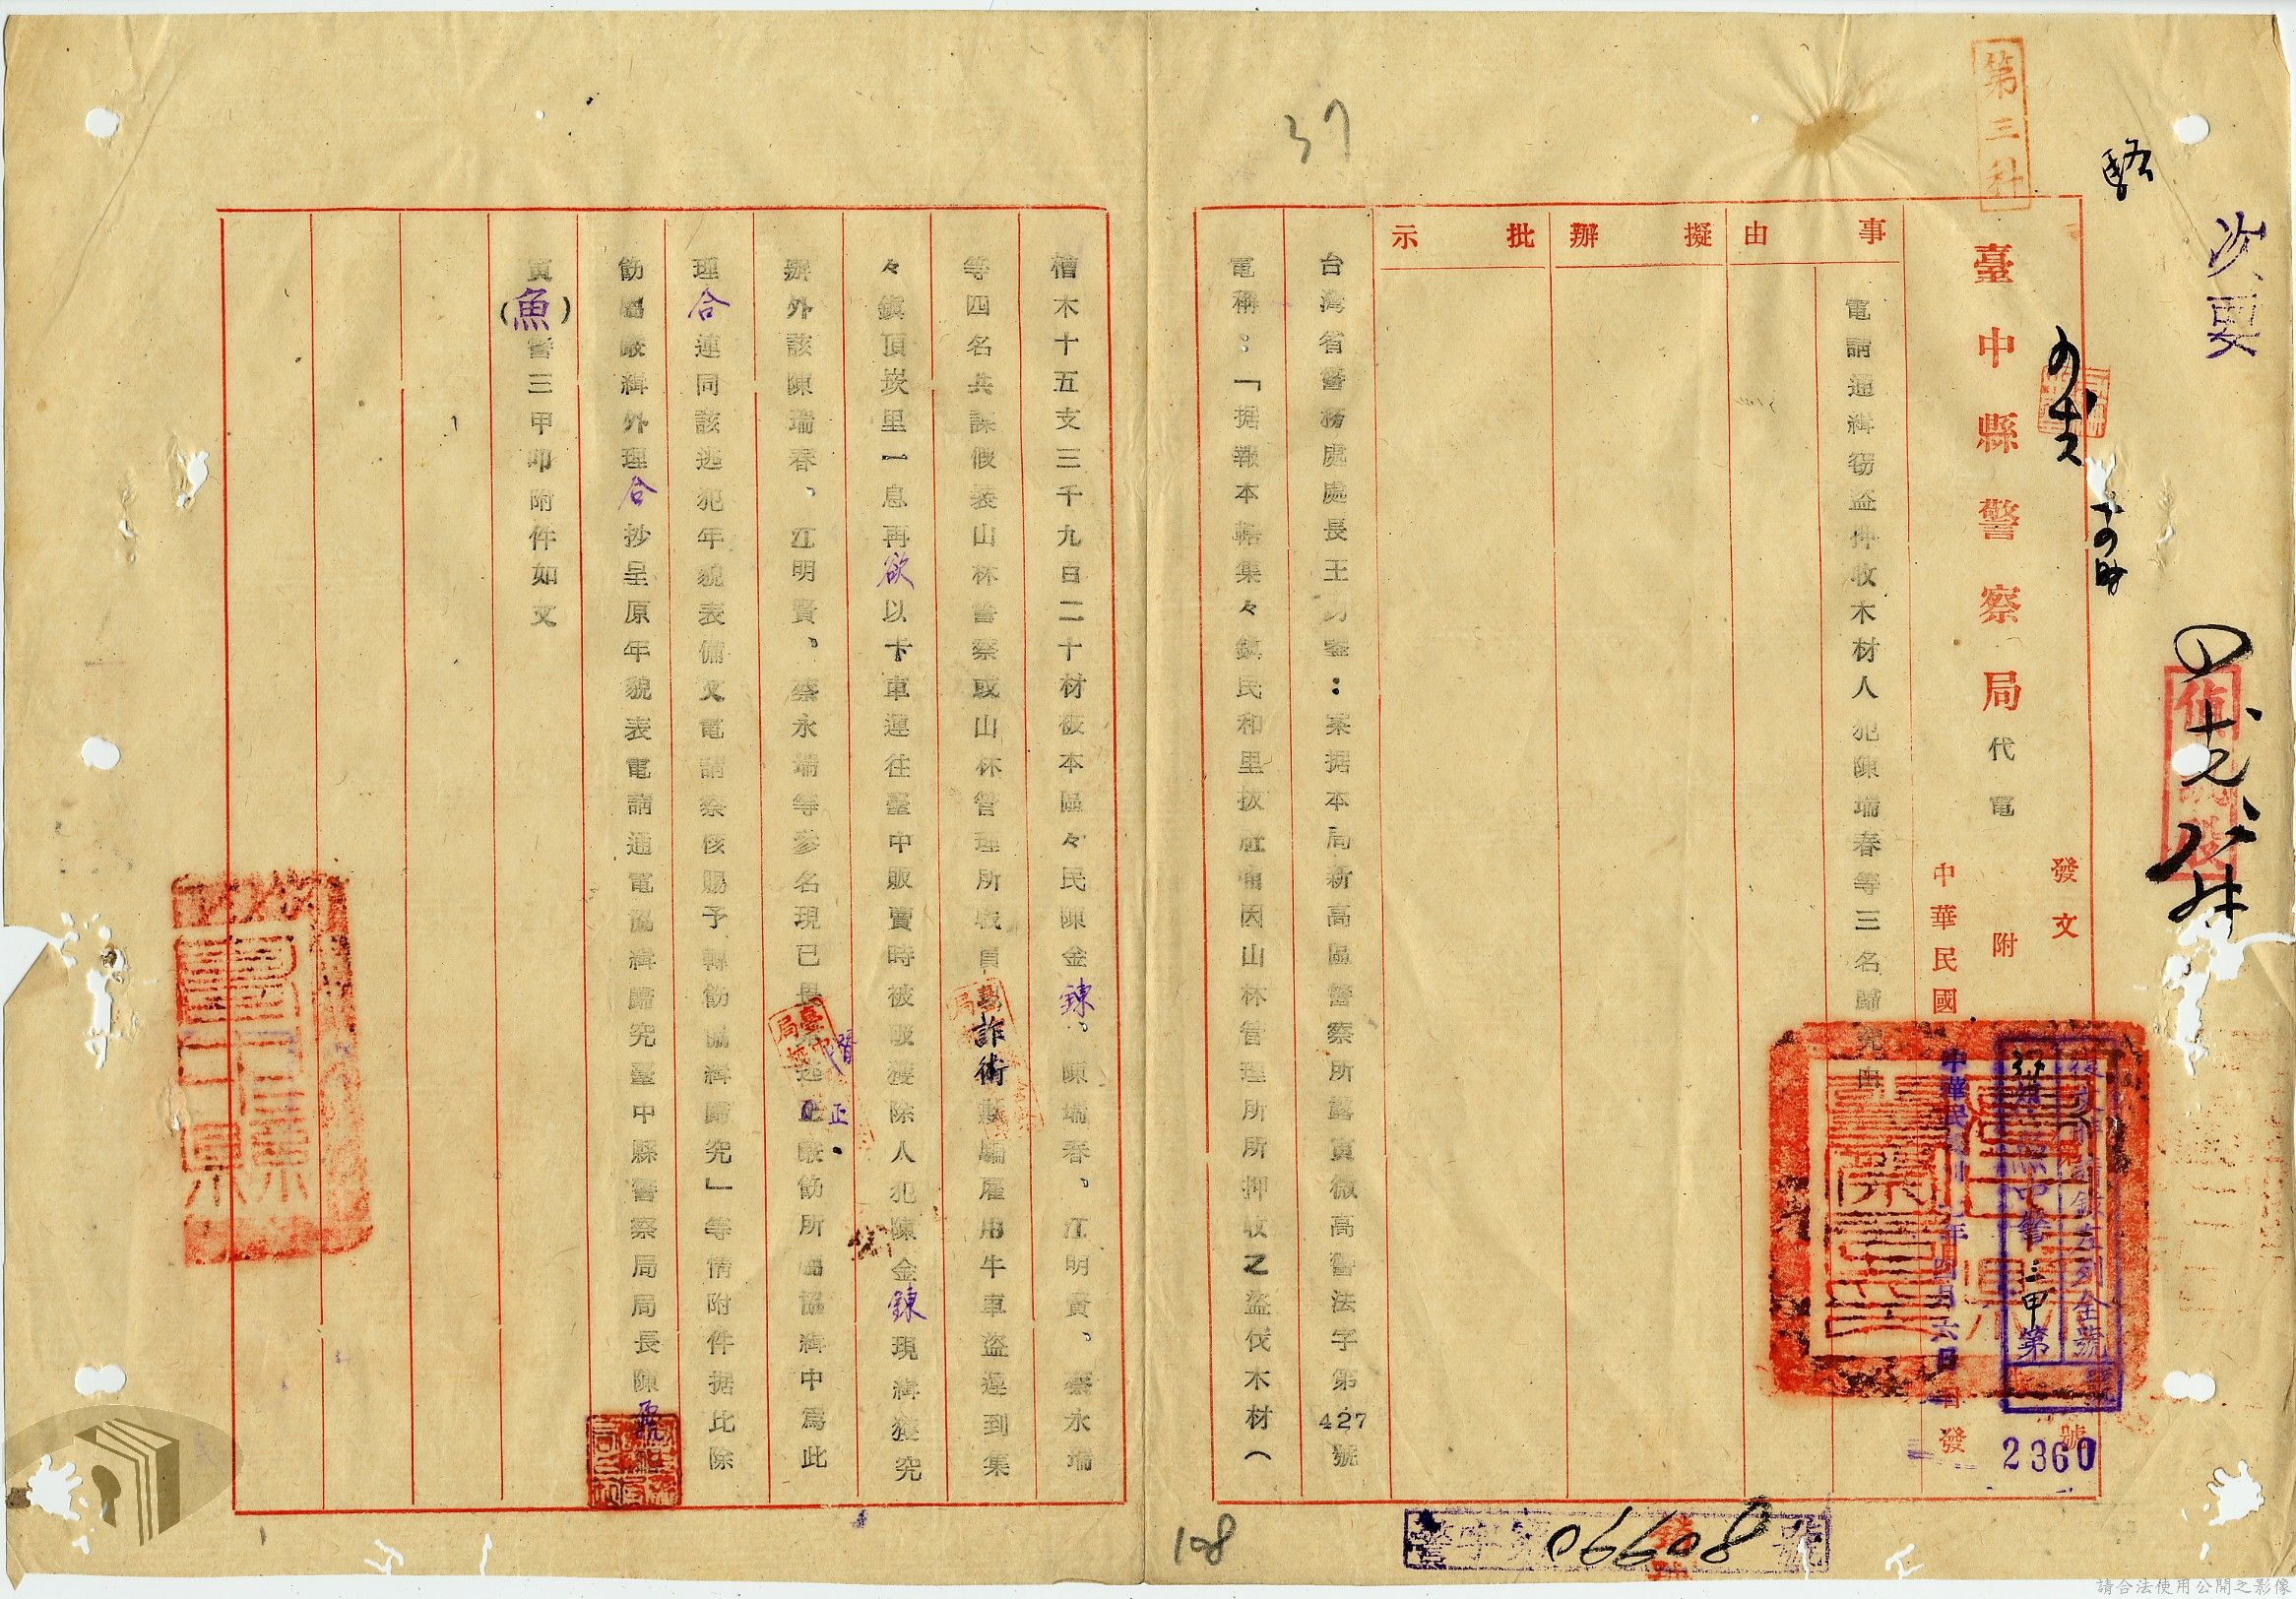 次要
第三社
臺中縣警察局代電
發文
附
中華民國
發
號
2360
復文時請敘左列全號
中警
三甲第
號
中華民國卅七年四月六日
事由
擬辦
批示
電請通緝竊盜押收木材人犯陳瑞春等三名歸究由
台灣省警務處處長王鈞鑒：案据本局新高區警察所寅微高警法字第427號
電稱：「据報本轄集々鎮民和里拔社埔因山林管理所所押收之盜伐木材（
檜木十五支三千九百二十材被本區々民陳金鍊、陳瑞春、江明賢、蔡永瑞
等四名共謀假裝山林警察或山林管理所職員詐術欺騙雇用牛車盜運到集
々鎮頂崁里一息再欲以卡車運往臺中販賣時被破獲除人犯陳金鍊現緝獲究
辦外該陳瑞春、江明賢、蔡永瑞等參名現已畏罪潛逃正嚴飭所屬協緝中為此
理合連同該逃犯年貌表備文電請察核賜予轉飭協緝歸究」等情附件据此除
飭屬嚴緝外理合抄呈原年貌表電請通電協緝歸究臺中縣警察局局長陳
寅（魚）警三甲叩附件如文
警字第06608號
37
108
請合法使用公開之影像